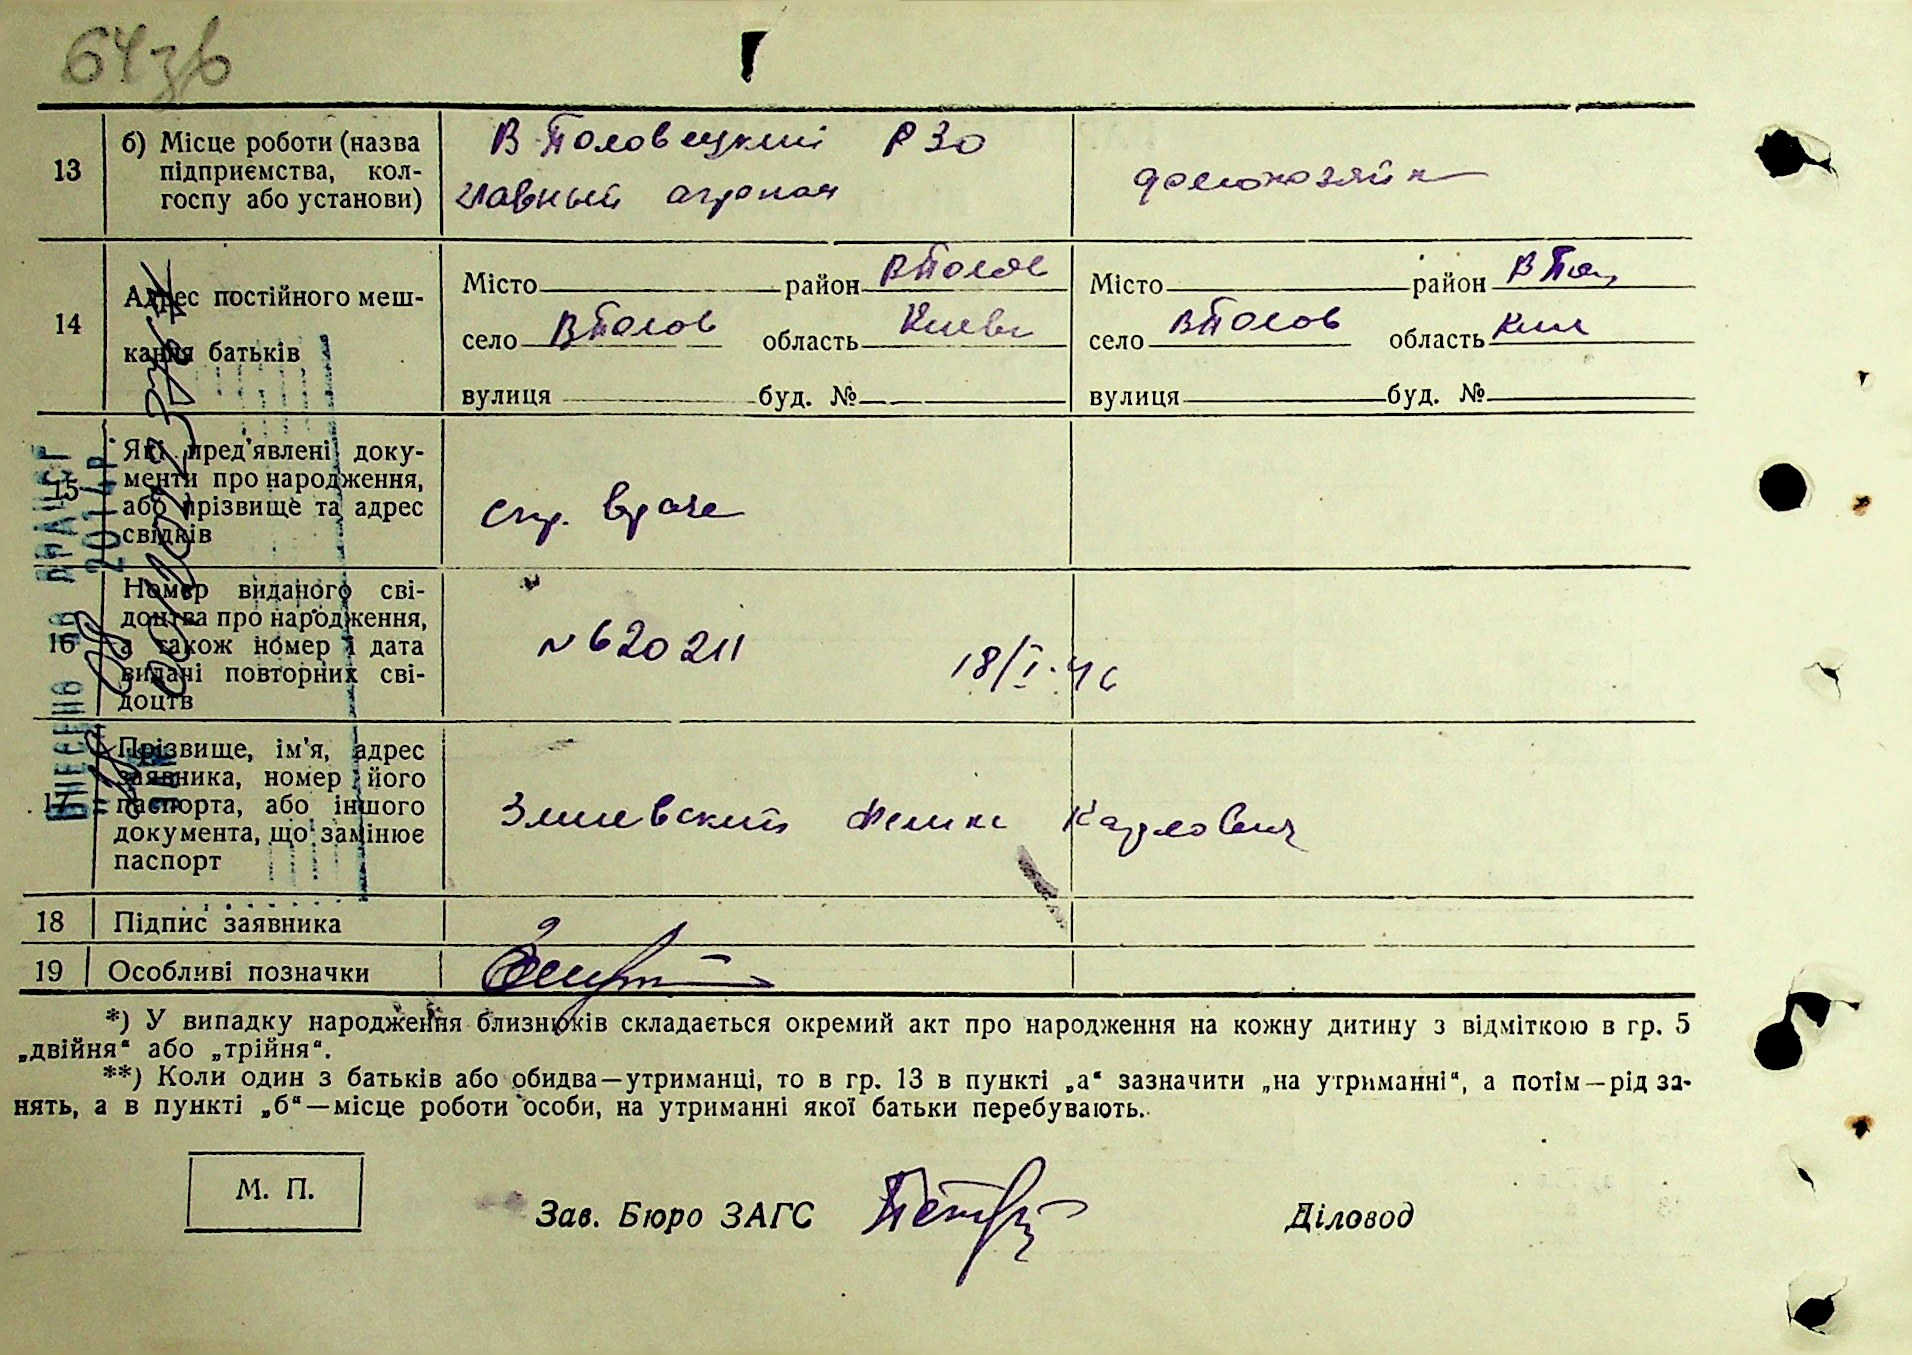 64зв
13
б) Місце роботи (назва
підприємства, кол-
госпу або установи)
В Половецкий РЗО
главный агроном
домохозяйк
14
Адрес постійного меш-
кання батьків
Місто район В Полов
село В Полов область Киевс
вулиця буд. №
Місто район В Пол
село В Полов область Кии
вулиця буд. №
15
Які пред'явлені доку-
менти про народження,
або прізвище та адрес
свідків
спр. врача
16
Номер виданого сві-
доцтва про народження,
а також номер і дата
видачі повторних сві-
доцтв
№ 620211 18/I-46
17
Прізвище, ім'я, адрес
заявника, номер його
паспорта, або іншого
документа, що замінює
паспорт
Феликс Карлович
18 Підпис заявника
19 Особливі позначки
*) У випадку народження близнюків складається окремий акт про народження на кожну дитину з відміткою в гр. 5
„двійня“ або „трійня“.
**) Коли один з батьків або обидва—утриманці, то в гр. 13 в пункті „а“ зазначити „на утриманні“, а потім—рід за-
нять, а в пункті „б“—місце роботи особи, на утриманні якої батьки перебувають.
М. П.
Зав. Бюро ЗАГС
Діловод
ВНЕСЕНО ДО ДРАЦСГ
2014 Р.